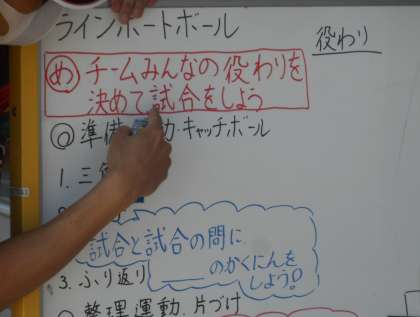 ラインポートボール
役わり
め チームみんなの役わりを
決めて試合をしよう
◎準備 動・キャッチボール
1. 三角
試合と試合の間に
___のかくにんを
しよう!
3. ふり返り
整理運動.片づけ